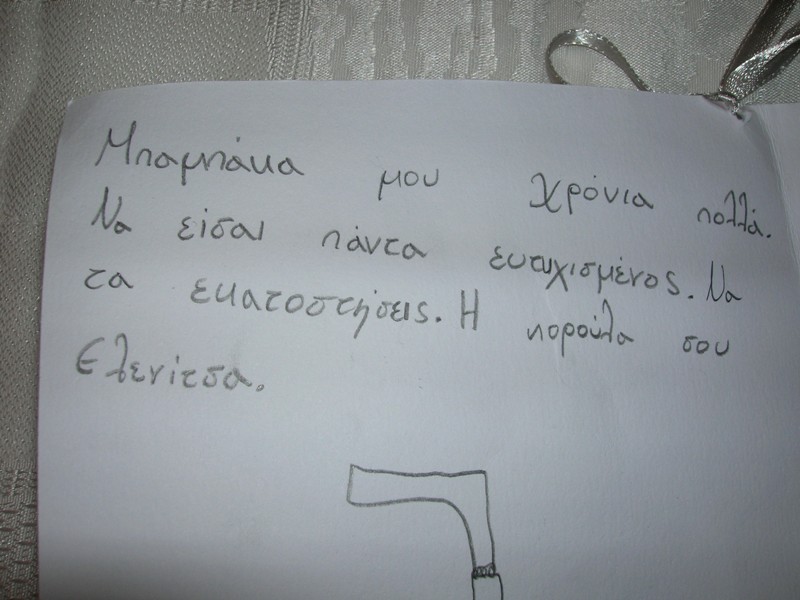 Μπαμπάκα μου Χρόνια πολλά.
Να είσαι πάντα ευτυχισμένος. Να
τα εκατοστήσεις. Η κορούλα σου
Ελενίτσα.